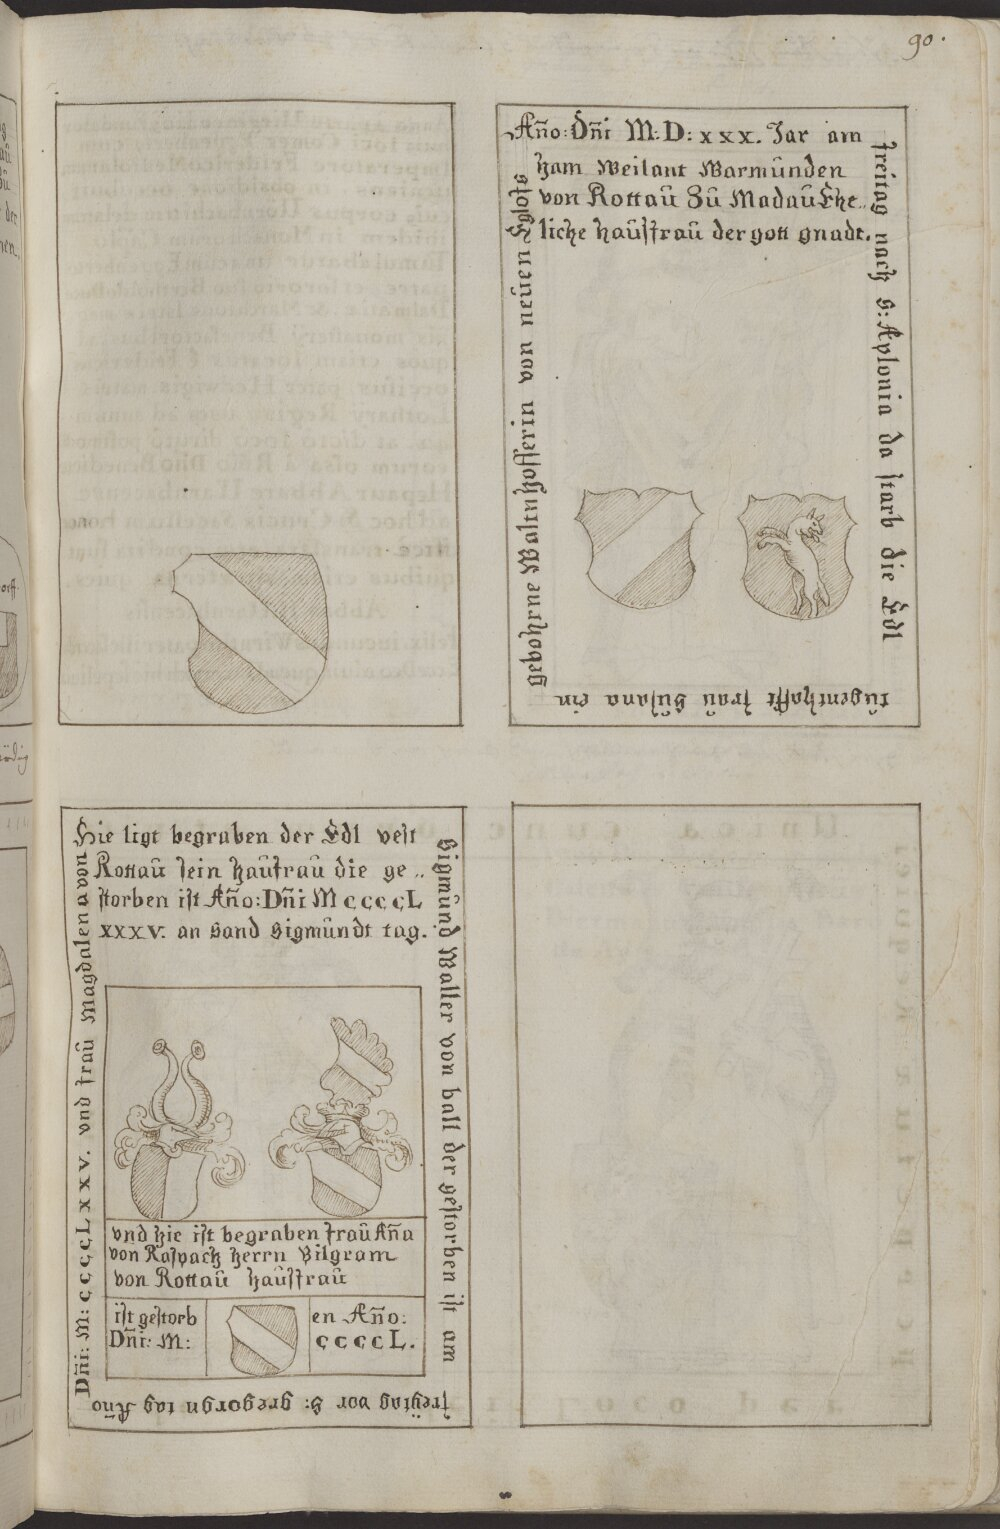 90.
Año: Dñi M: D: xxx. Jar am
freitag nach S: Aplonia da starb die Edl
tugenthafft fraŭ Sŭsana ein
gebohrne Waltnhofferin von neŭen Eglofs
ham weilant Warmŭnden
von Rottaŭ Zŭ Madaŭ Ehe..
liche haŭsfraŭ der gott gnadt.
Hie ligt begraben der Edl vest
Sigmŭnd Waller von ball der gestorben ist am
freytag vor S: gregorgn tag Año
Dñi: M: CCCCLXXV. vnd fraŭ Magdalena von
Rottaŭ sein haŭfraŭ die ge..
storben ist Año: Dñi M CCCCL
XXXV. an Sand Sigmŭndt tag.
vnd hie ist begraben fraŭ Aña
von Raspach herrn Bilgram
von Rottaŭ haŭsfraŭ
ist gestorb en Año:
Dñi: M: CCCCL.